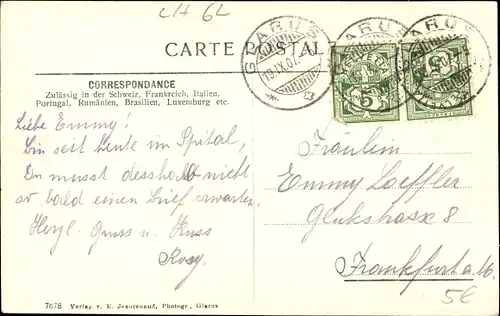 CH GL
CARTE POSTALE
GLARUS
19.IX.07.
GLARUS
GLARUS
HELVETIA
5
5
CORRESPONDANCE
Zulässig in der Schweiz, Frankreich, Italien,
Portugal, Rumänien, Brasilien, Luxemburg etc.
Liebe Emmy!
Bin seit heute im Spital,
Du musst desshalb nicht
so bald einen Brief erwarten.
Herzl. Gruss u. Kuss
Rosy.
Fräulein
Emmy Loeffler
Glükstrasse 8
Frankfurt a. M.
5€
7678 Verlag v. E. Jeanrenaud, Photogr., Glarus